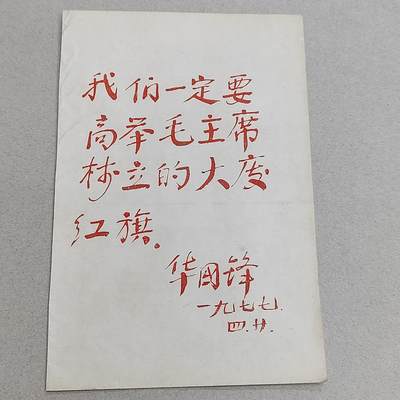 我们一定要
高举毛主席
树立的大庆
红旗。
华国锋
一九七七.
四.廿.